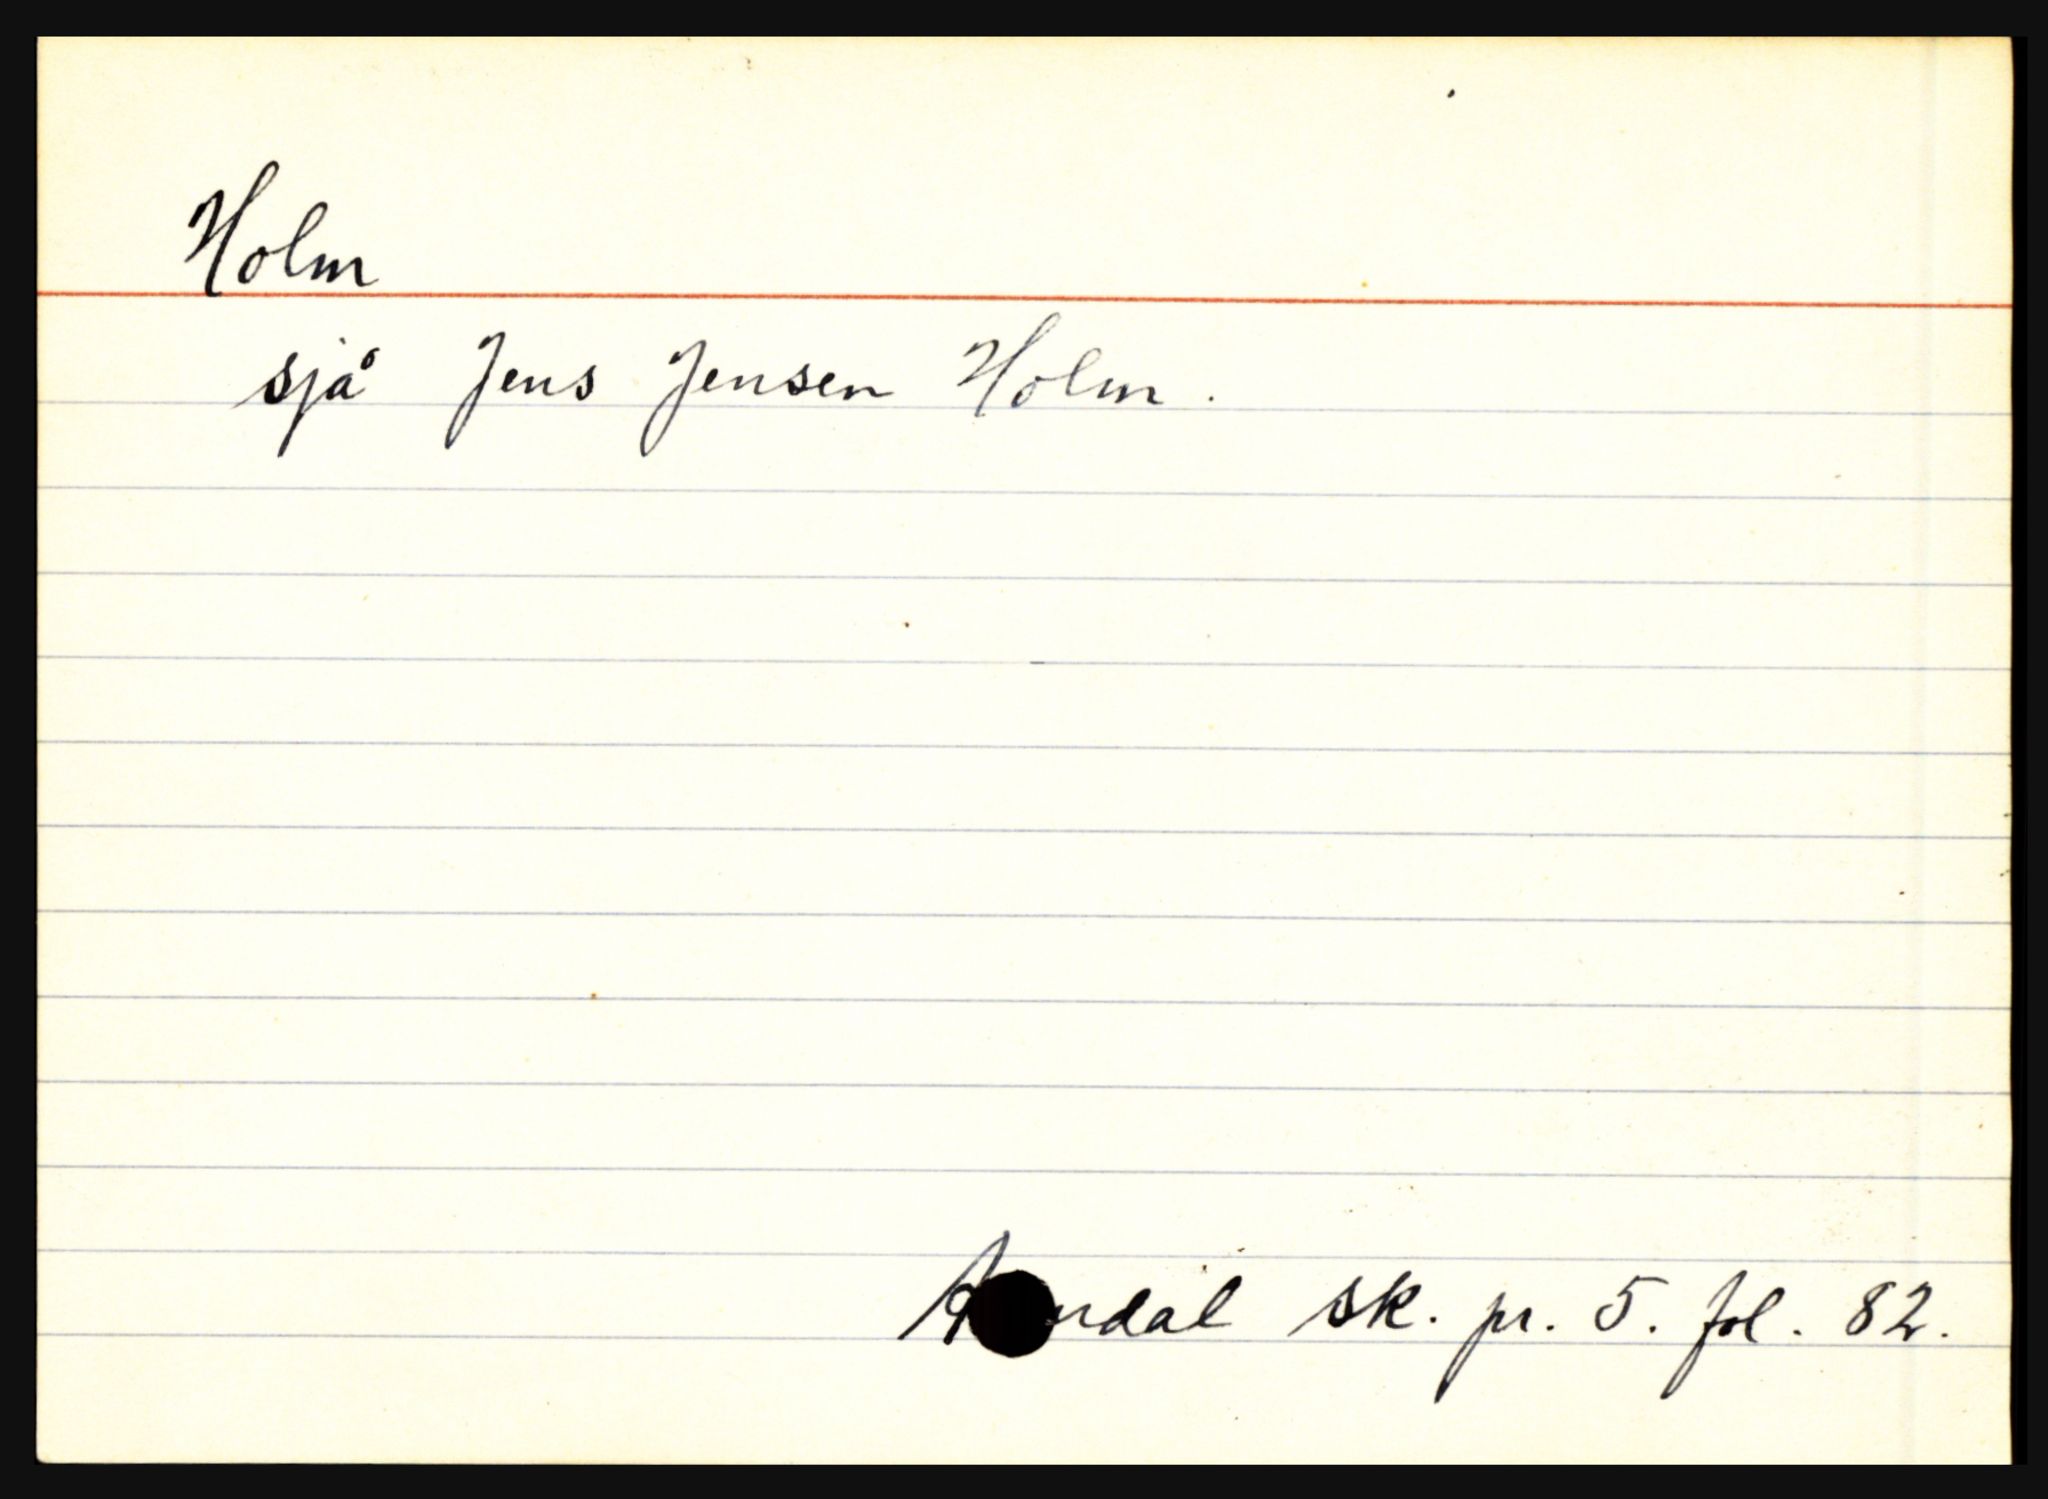 Holm
sjå Jens Jensen Holm.
sk. pr. 5. fol. 82.